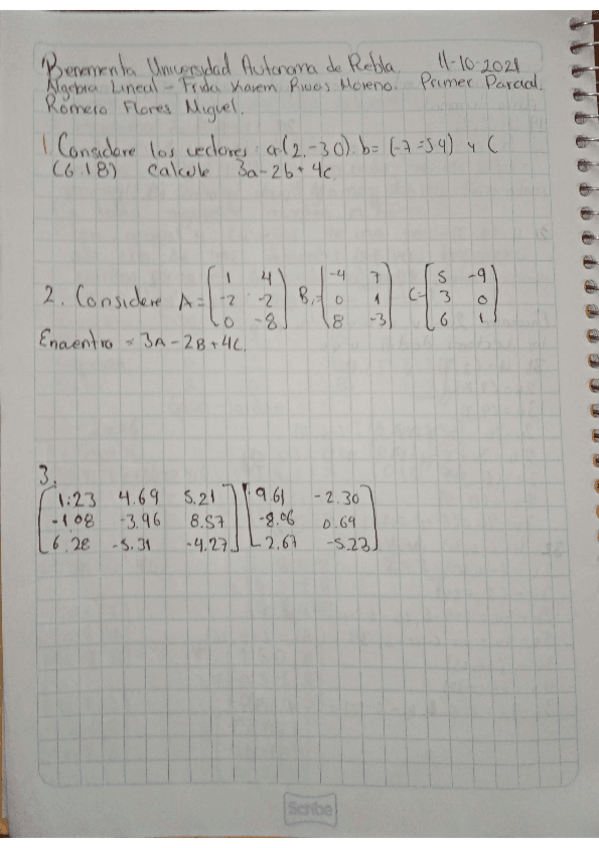 Benemerita Universidad Autonoma de Puebla 11-10-2021
Algebra Lineal - Frida Karem Rivas Moreno. Primer Parcial.
Romero Flores Miguel.
1 Considere los vectores a=(2,-30). b=(-7=54) y C
(618) Calcule 3a-2b+4c.
2. Considere A=[1 4 B=[-4 7 C=[5 -9
-2 -2 0 1 3 0
0 -8] 8 -3] 6 1]
Encuentra = 3A-2B+4C.
3.
[1.23 4.69 5.21] [9.61 -2.30]
-1.08 -3.96 8.57 -8.06 0.69
6.28 -5.31 -4.27 2.67 -5.23
Scribe